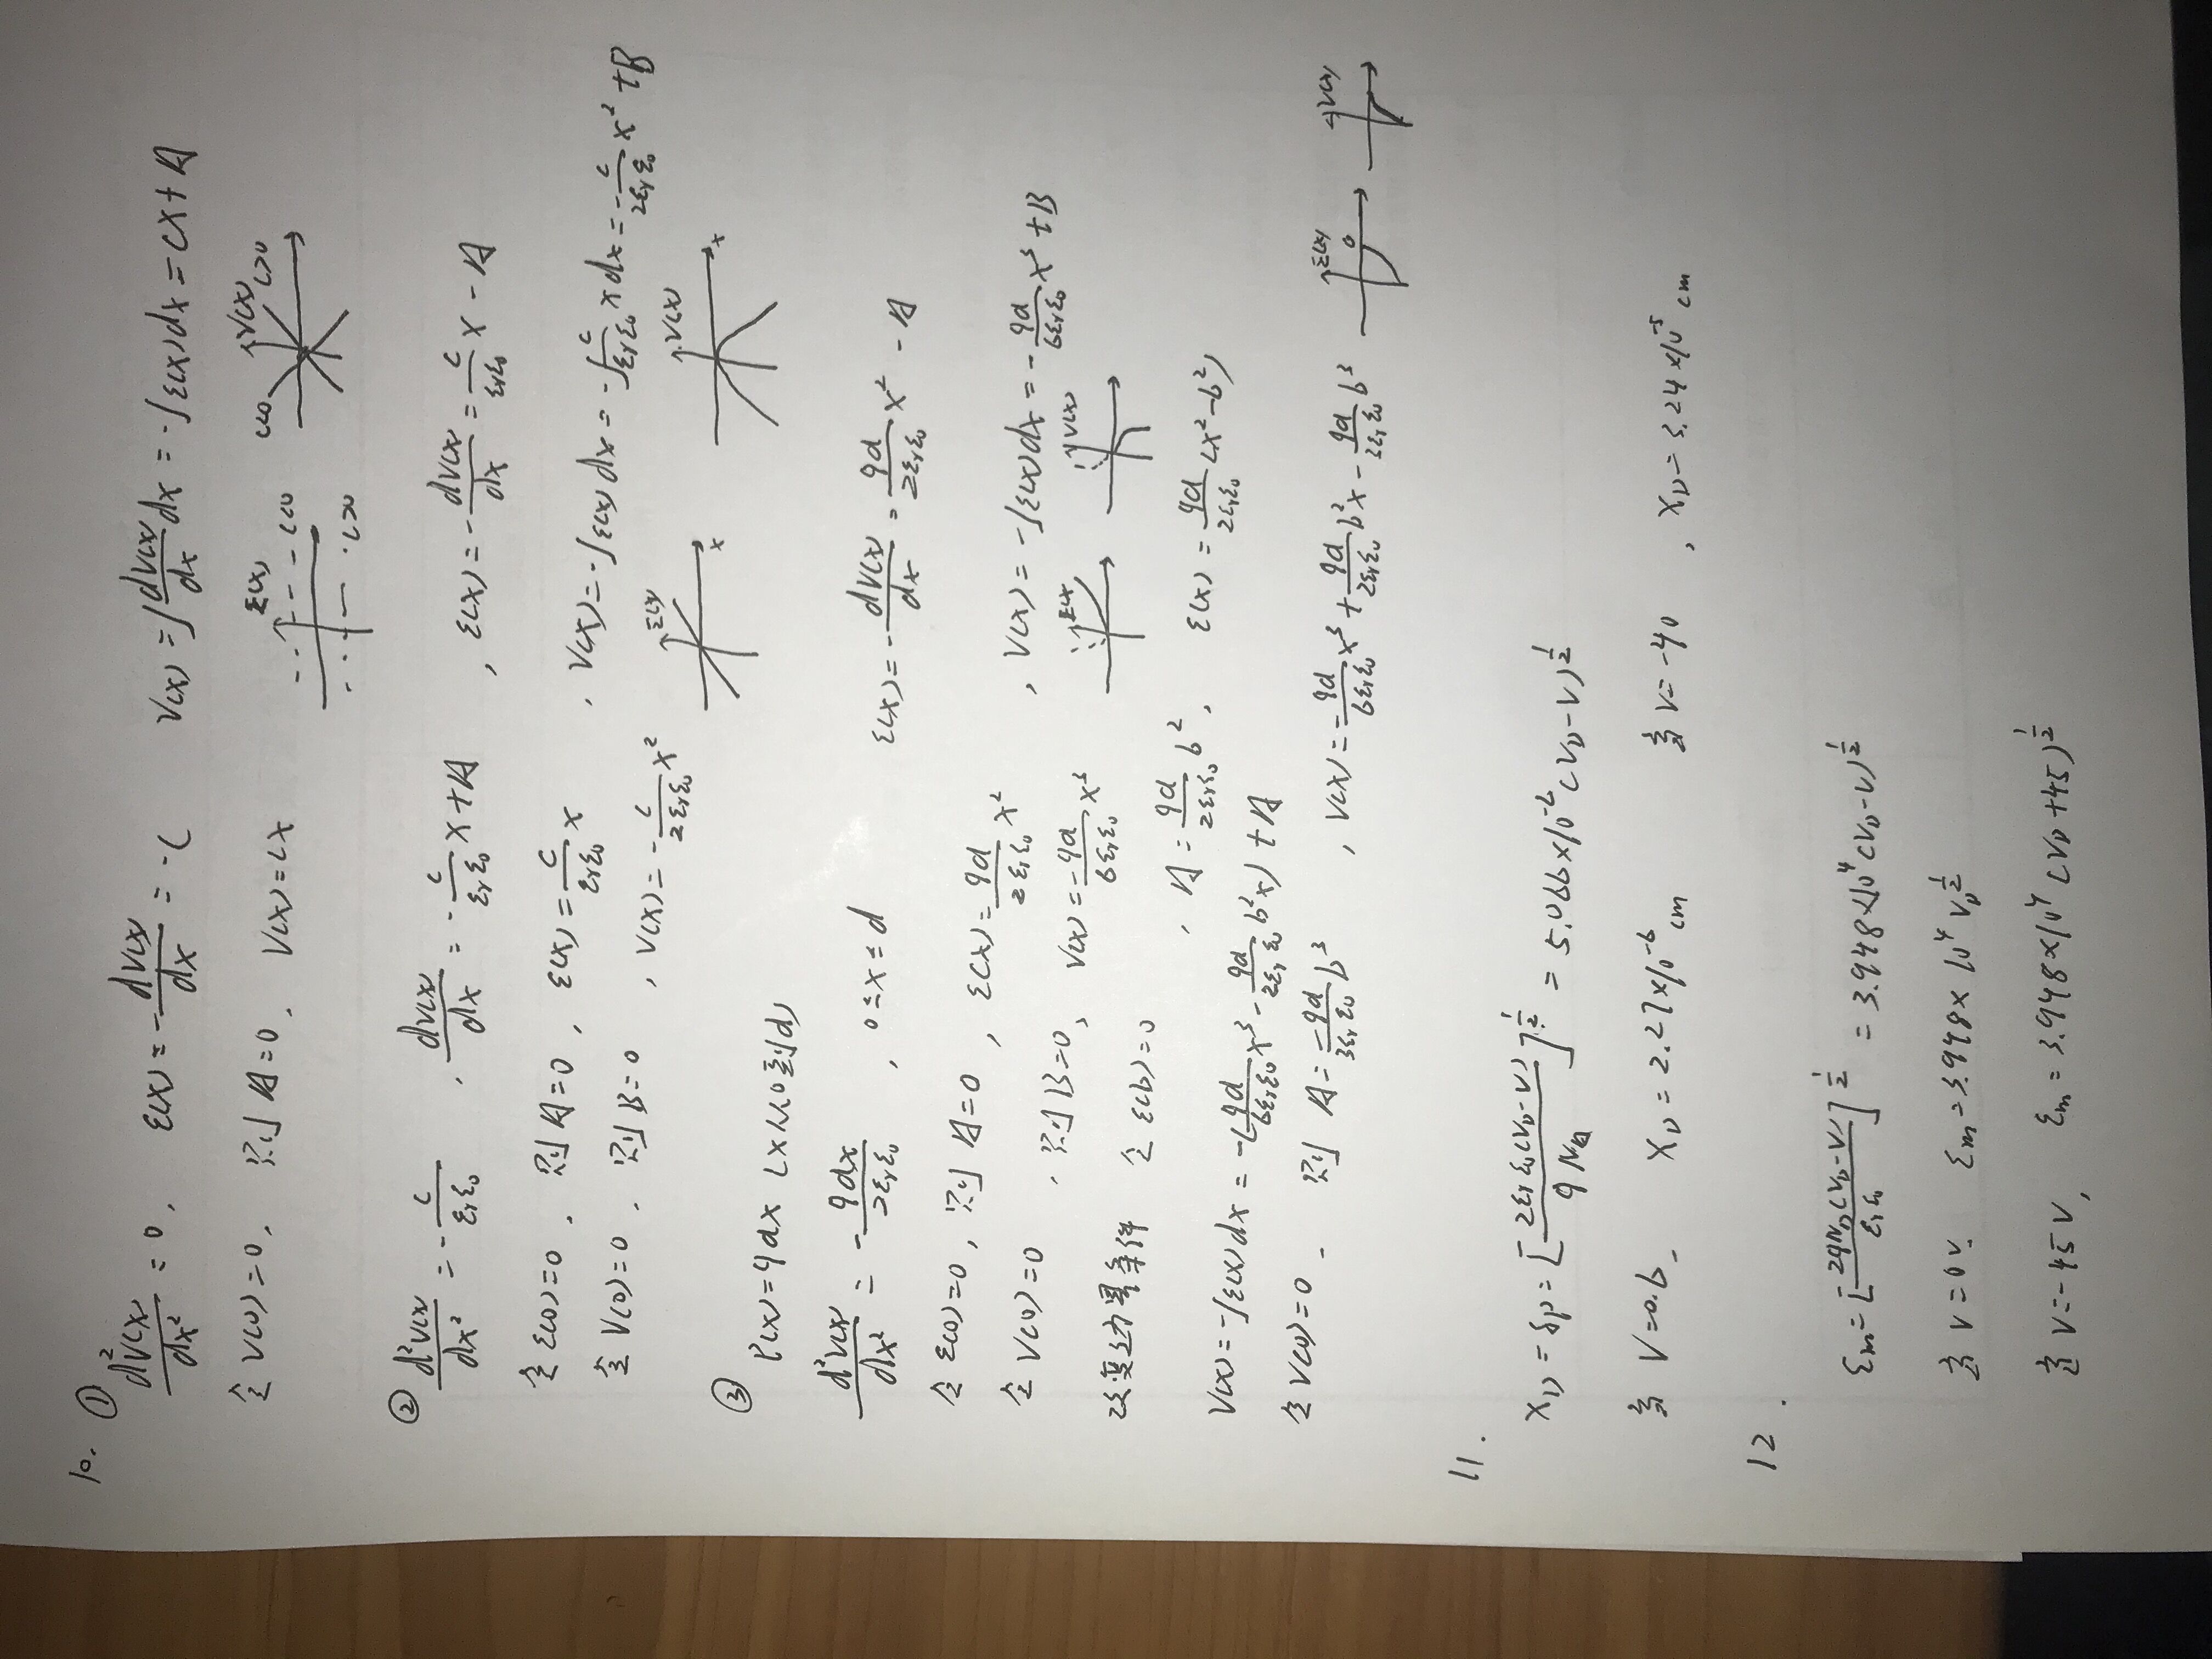 10. ① d²V(x)/dx² = 0, ε(x) = -dV(x)/dx = -C V(x) = ∫dV(x)/dx dx = -∫ε(x)dx = Cx + A
令 V(0)=0, 则 A=0. V(x)=Cx
ε(x) C<0 C>0 C<0 V(x) C>0
② d²V(x)/dx² = -C/εrε0, dV(x)/dx = -C/εrε0 x + A, ε(x) = -dV(x)/dx = C/εrε0 x - A
令 ε(0)=0. 则 A=0, ε(x) = C/εrε0 x, V(x) = -∫ε(x)dx = -∫C/εrε0 x dx = -C/2εrε0 x² + B
令 V(0)=0. 则 B=0, V(x) = -C/2εrε0 x²
ε(x) x V(x) x
③ ρ(x)=qax (x从0到d)
d²V(x)/dx² = -qax/2εrε0, 0≤x≤d ε(x) = -dV(x)/dx = qa/2εrε0 x² - A
令 ε(0)=0, 则 A=0, ε(x) = qa/2εrε0 x², V(x) = -∫ε(x)dx = -qa/6εrε0 x³ + B
令 V(0)=0, 则 B=0, V(x) = -qa/6εrε0 x³
ε(x) V(x)
改变边界条件 令 ε(b)=0, A = qa/2εrε0 b², ε(x) = qa/2εrε0 (x²-b²)
V(x) = -∫ε(x)dx = -(qa/6εrε0 x³ - qa/2εrε0 b²x) + A
令 V(0)=0. 则 A = -qa/3εrε0 b³, V(x) = -qa/6εrε0 x³ + qa/2εrε0 b²x - qa/3εrε0 b³
ε(x) 0 V(x)
11.
XD = δp = [2εrε0(VD-V)/qNa]^½ = 5.066×10^-2 (VD-V)^½
当 V=0.6. XD = 2.27×10^-6 cm 当 V=-40, XD = 3.24×10^-5 cm
12.
εm = [2qND(VD-V)/εrε0]^½ = 3.948×10⁴ (VD-V)^½
当 V=0V. εm = 3.948×10⁴ VD^½
当 V=-45V, εm = 3.948×10⁴ (VD+45)^½